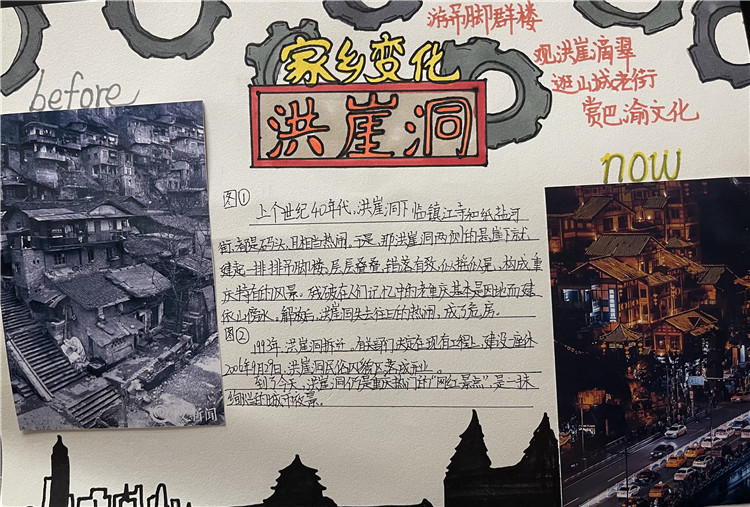 游吊脚群楼
观洪崖滴翠
逛山城老街
赏巴渝文化
家乡变化
洪崖洞
before
now
图①
上个世纪40年代,洪崖洞下临镇江寺和纸盐河
街,是码头,且相当热闹。于是,那洪崖洞两侧的悬崖下就
建起一排排吊脚楼,层层叠叠,错落有致,似摇似晃,构成重
庆特有的风景。残破在人们记忆中的老重庆基本是因地而建
依山傍水。解放后,洪崖洞失去往日的热闹,成了危房。
图②
1993年,洪崖洞拆迁,有关部门决定在现有工程上,建设
2006年9月,洪崖洞民俗风貌区建成开业。
到了今天,洪崖洞仍是重庆热门的“网红景点”,是一抹
绚烂的城市夜景。
新闻